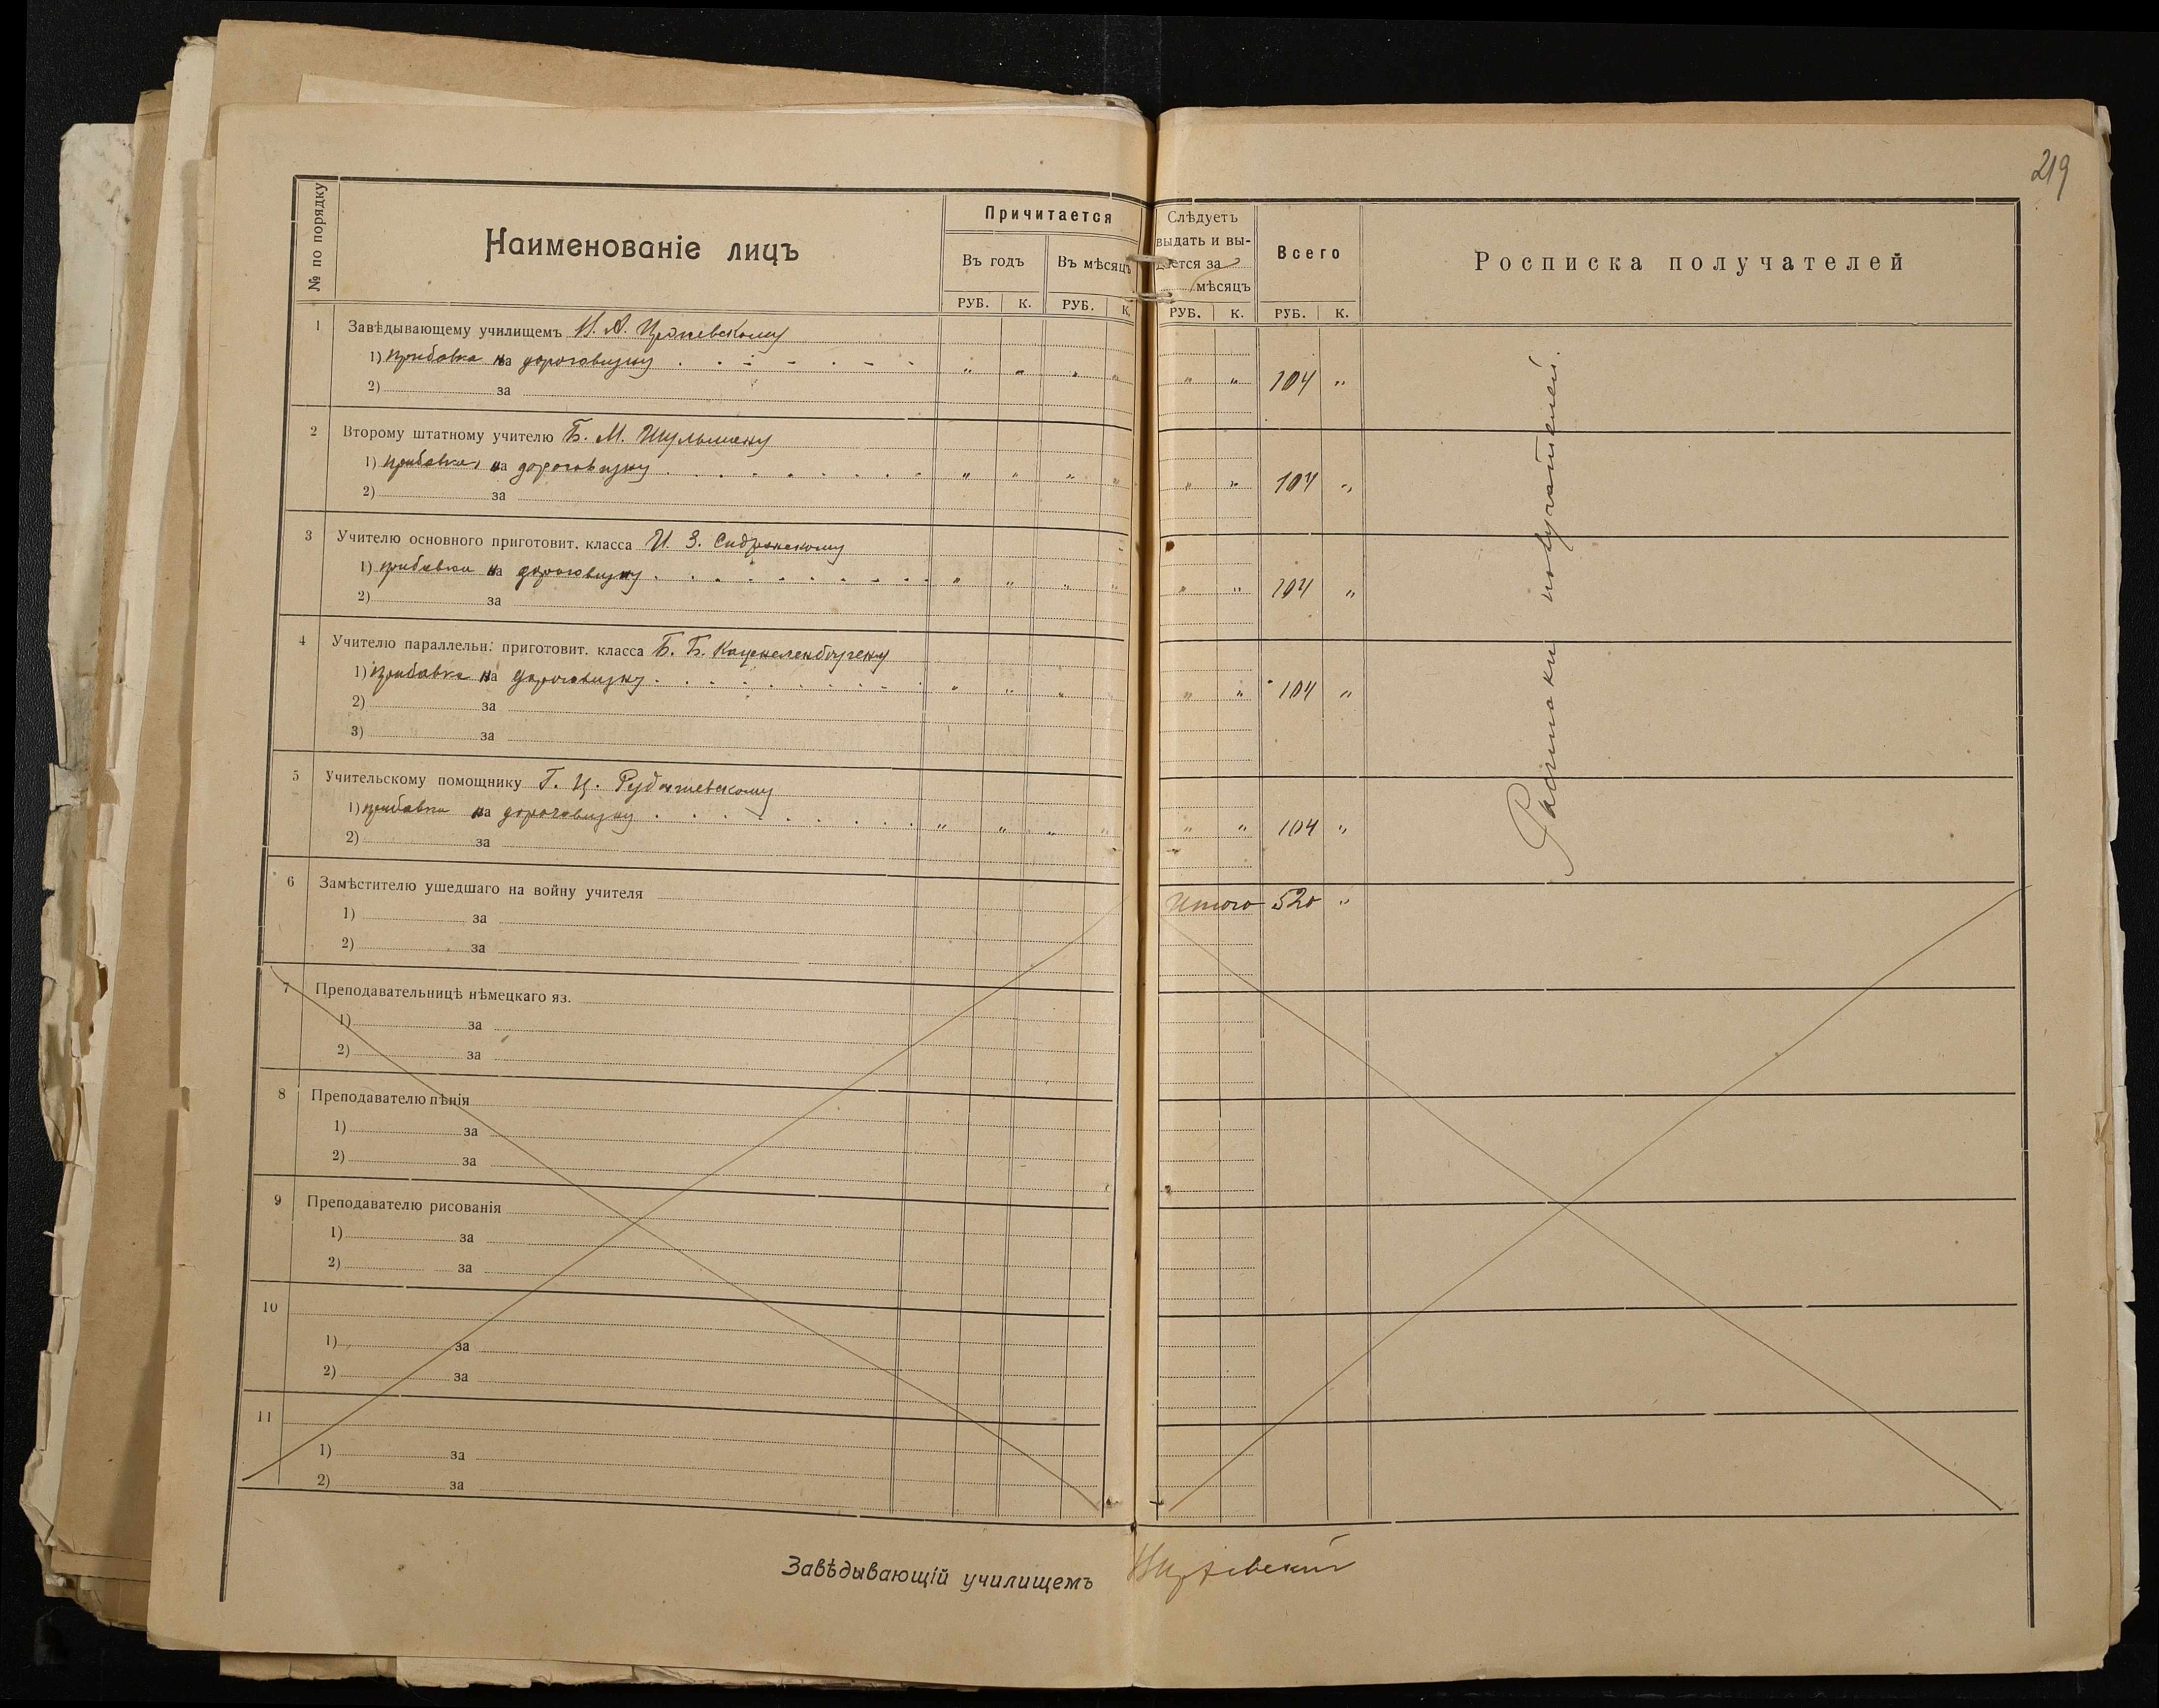 219
№ по порядку
Наименованіе лицъ
Причитается
Въ годъ
Въ мѣсяцъ
РУБ. К. РУБ. К.
Слѣдуетъ
выдать и вы-
дается за
мѣсяцъ
РУБ. К.
Всего
РУБ. К.
Росписка получателей
1 Завѣдывающему училищемъ
1) прибавка на дороговизну " " " " " " 104 "
2) за
2 Второму штатному учителю Б. М. Шульману
1) прибавка на дороговизну " " " " " " 104 "
2) за
3 Учителю основного приготовит. класса И. З.
1) прибавка на дороговизну " " " " " " 104 "
2) за
4 Учителю параллельн. приготовит. класса Б. Б. Каценеленбогену
1) прибавка на дороговизну " " " " " " 104 "
2) за
3) за
5 Учительскому помощнику Г. Ц. Рудашевскому
1) прибавка на дороговизну " " " " " " 104 "
2) за
Росписки получателей.
6 Замѣстителю ушедшаго на войну учителя Итого 520 "
1) за
2) за
7 Преподавательницѣ нѣмецкаго яз.
1) за
2) за
8 Преподавателю пѣнія
1) за
2) за
9 Преподавателю рисованія
1) за
2) за
10
1) за
2) за
11
1) за
2) за
Завѣдывающій училищемъ